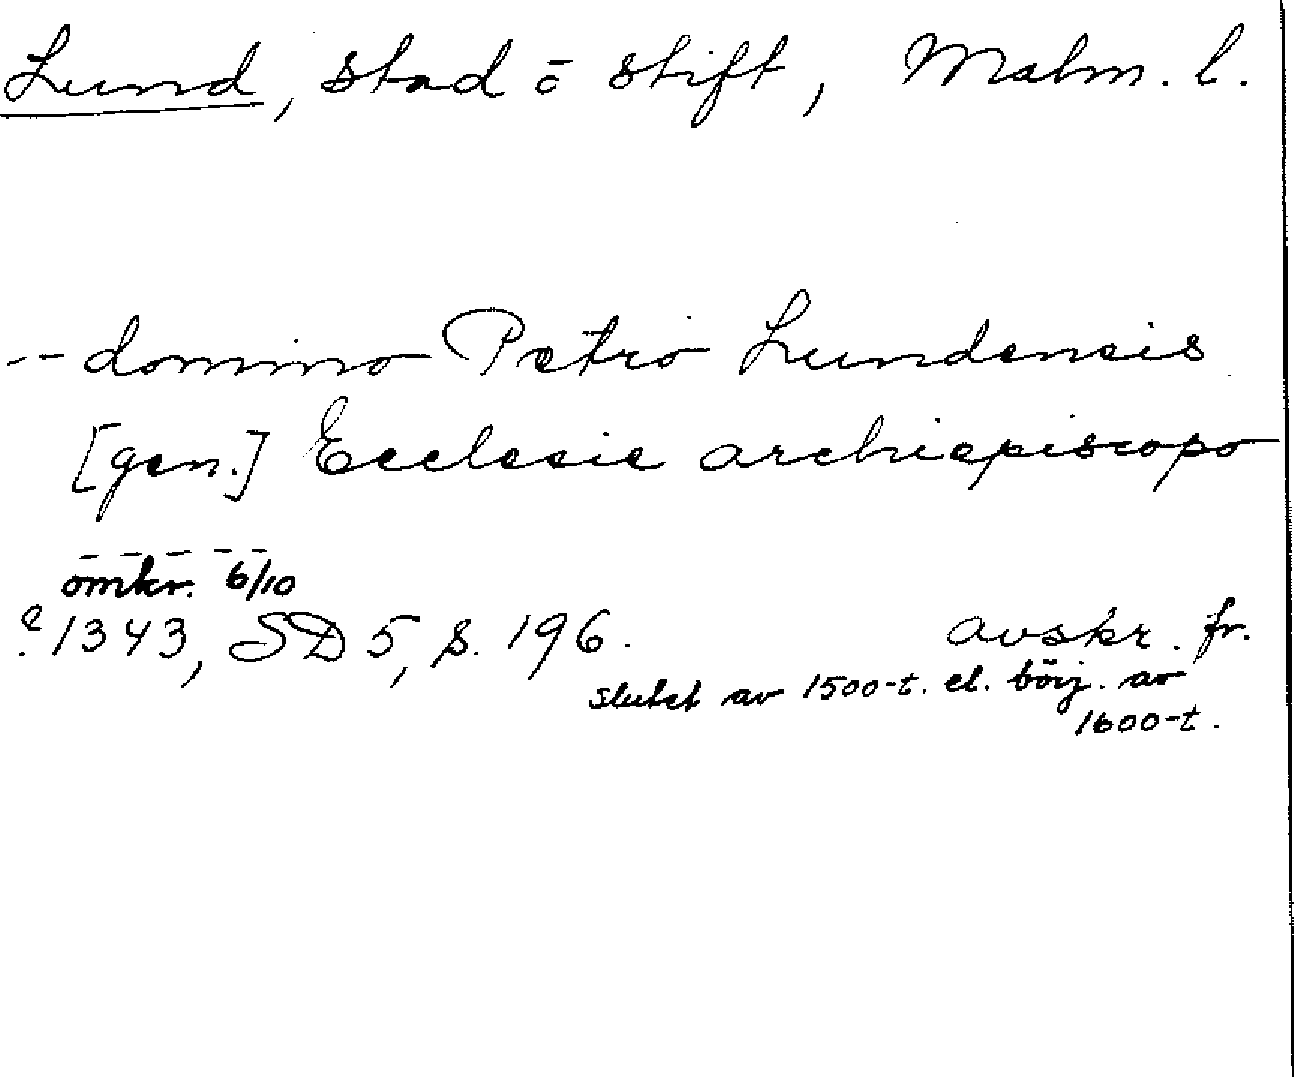 Lund, stad ō stift, Malm. l.
-- domino Petro Lundensis
[gen.] Ecclesie archiepiscopo
- - - - -
omkr. 6/10
?1343, SD 5, s. 196. avskr. fr.
slutet av 1500-t. el. börj. av
1600-t.